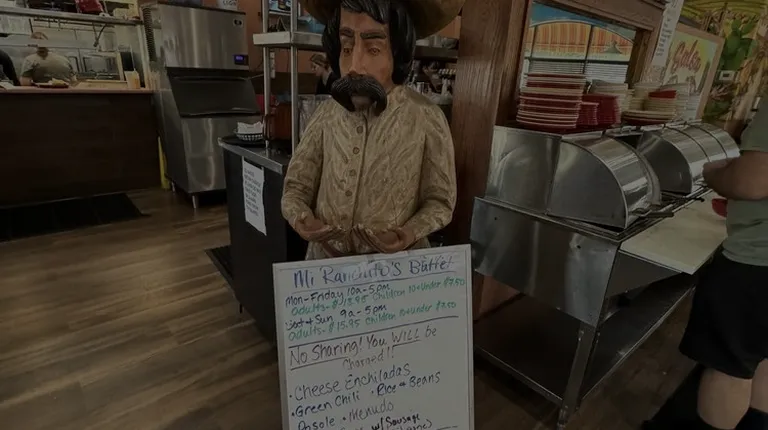 Mi Ranchito's Buffet
Mon-Friday 10a-5pm
adults- $13.95 Children 10+Under $7.50
Sat+Sun 9a-5pm
adults- $15.95 Children 10+under $7.50
No Sharing! You WILL be
Charged!!
• Cheese Enchiladas
• Green Chili • Rice + Beans
Posole • Menudo
w/ Sausage